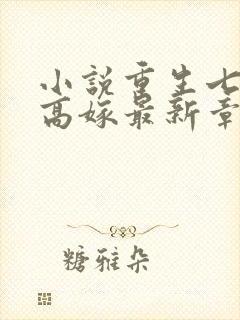 小说重生七
高嫁最新章
糖雅朵